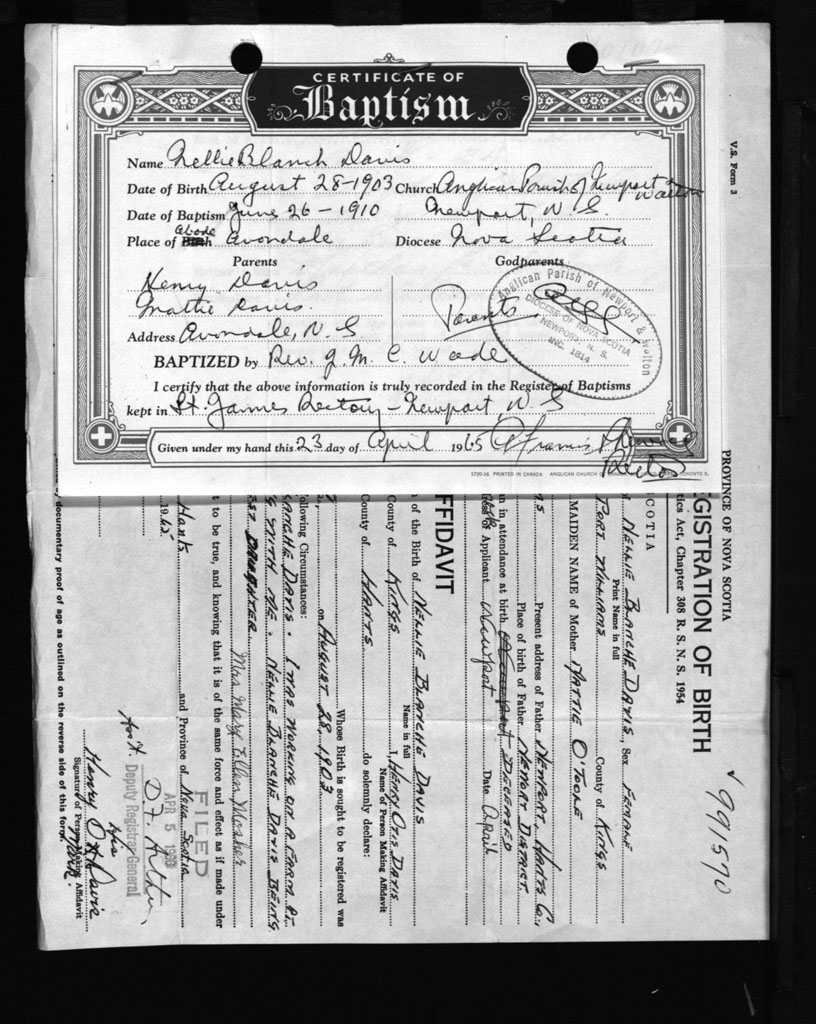 CERTIFICATE OF
Baptism
Name Nellie Blanch Davis
Date of Birth August 28-1903 Church Anglican Parish of Newport Walton
Date of Baptism June 26-1910 Newport, N.S.
Place of Abode Avondale Diocese Nova Scotia
Parents Godparents
Henry Davis
Mattie Davis. Parents
Address Avondale, N.S
BAPTIZED by Rev. J. M. C. Wade
I certify that the above information is truly recorded in the Register of Baptisms
kept in St. James Rectory - Newport, N.S
Given under my hand this 23 day of April 1965
Rector
Anglican Parish of Newport & Walton
DIOCESE OF NOVA SCOTIA
NEWPORT, N. S.
INC. 1814
PRINTED IN CANADA ANGLICAN CHURCH
V.S. Form 3
991570
PROVINCE OF NOVA SCOTIA
GISTRATION OF BIRTH
tics Act, Chapter 308 R. S. N. S. 1954
SCOTIA
NELLIE BLANCHE DAVIS, Sex FEMALE
Print Name in full
PORT WILLIAMS County of KINGS
MAIDEN NAME of Mother MATTIE O'TOOLE
Present address of Father NEWPORT, HANTS CO.,
Place of birth of Father NEWPORT DISTRICT
n in attendance at birth DECEASED
of Applicant Newport Date April
FFIDAVIT
of the Birth of NELLIE BLANCHE DAVIS
Name in full
I, HENRY OTIS DAVIS
Name of Person Making Affidavit
County of KINGS
County of HANTS do solemnly declare:
Whose Birth is sought to be registered was
on AUGUST 28, 1903
ollowing Circumstances:
LANCHE DAVIS. I WAS WORKING ON A FARM AT
WITH ME. NELLIE BLANCHE DAVIS BEING
EST DAUGHTER
Mrs. Mary Ellen Mosher
t to be true, and knowing that it is of the same force and effect as if made under
Hants and Province of Nova Scotia
1965
FILED
APR 5
Deputy Registrar General
his
Henry O X Davis
Mark.
Signature of Person Making Affidavit
documentary proof of age as outlined on the reverse side of this form.